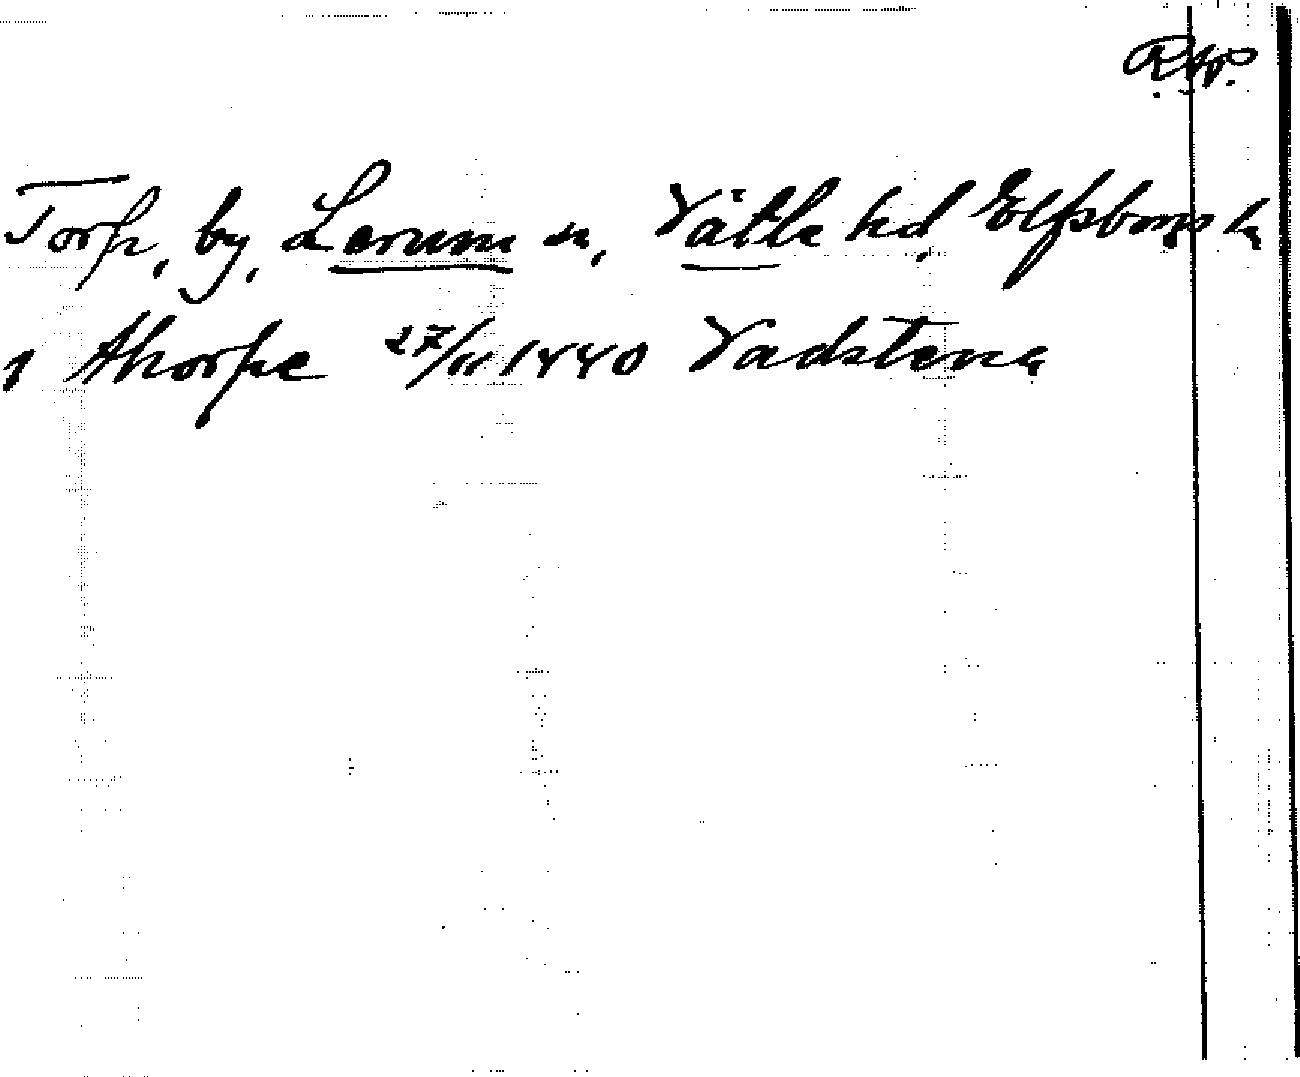 Torp, by, Lerum sn, Vätle hd, Elfsborgs l
j thorpe 27/11 1440 Vadstena